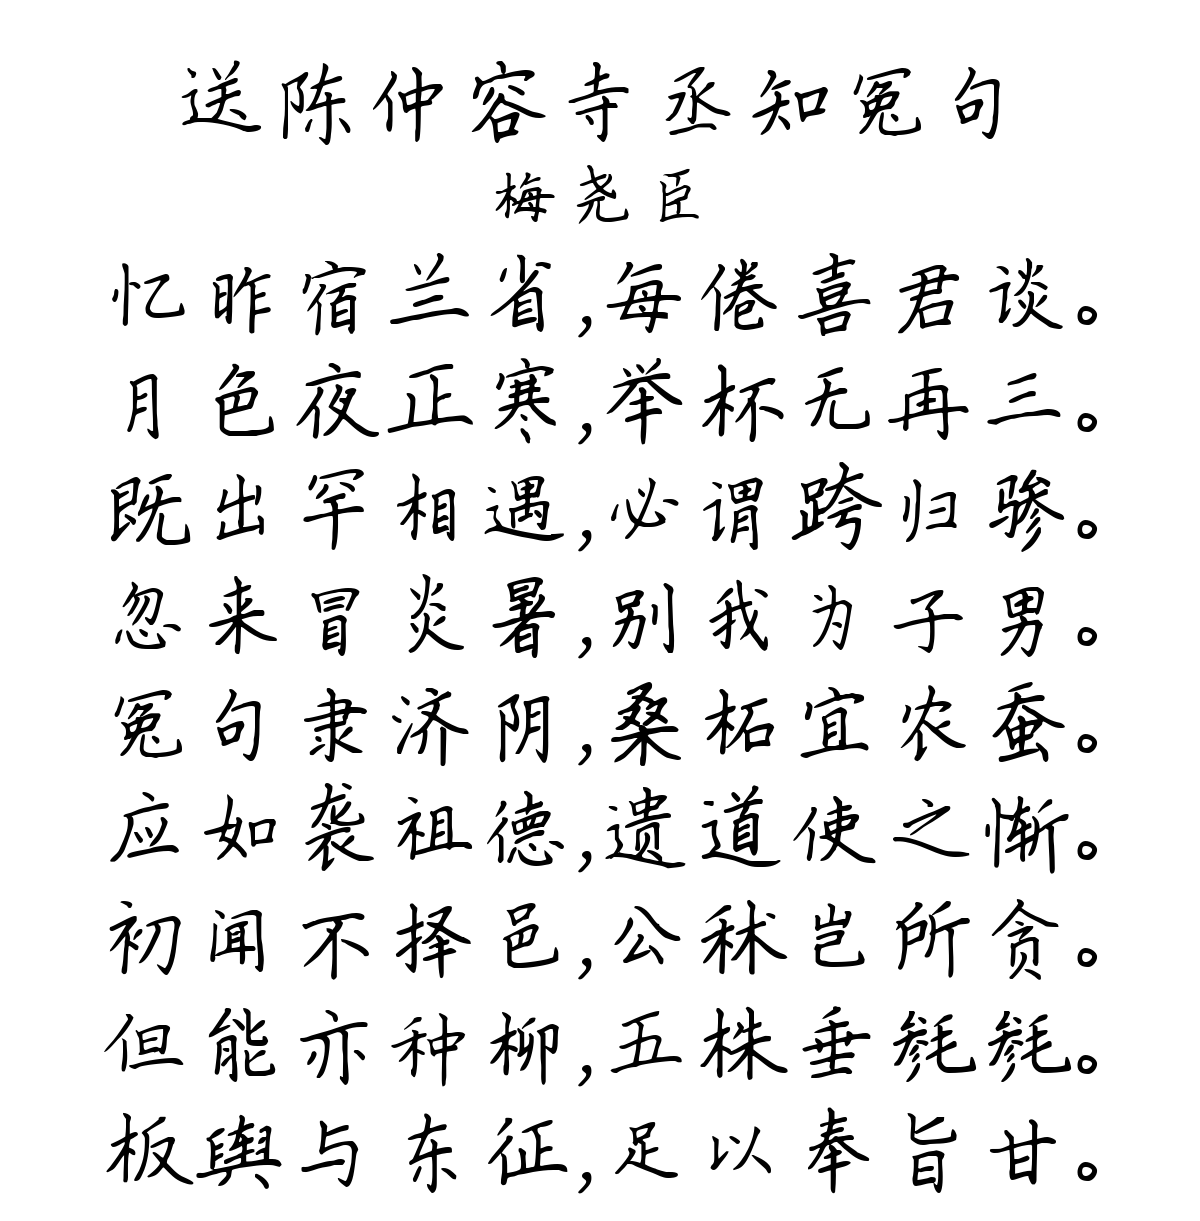 送陈仲容寺丞知冤句
梅尧臣
忆昨宿兰省,每倦喜君谈。
月色夜正寒,举杯无再三。
既出罕相遇,必谓跨归骖。
忽来冒炎暑,别我为子男。
冤句隶济阴,桑柘宜农蚕。
应如袭祖德,遗道使之惭。
初闻不择邑,公秫岂所贪。
但能亦种柳,五株垂毵毵。
板舆与东征,足以奉旨甘。